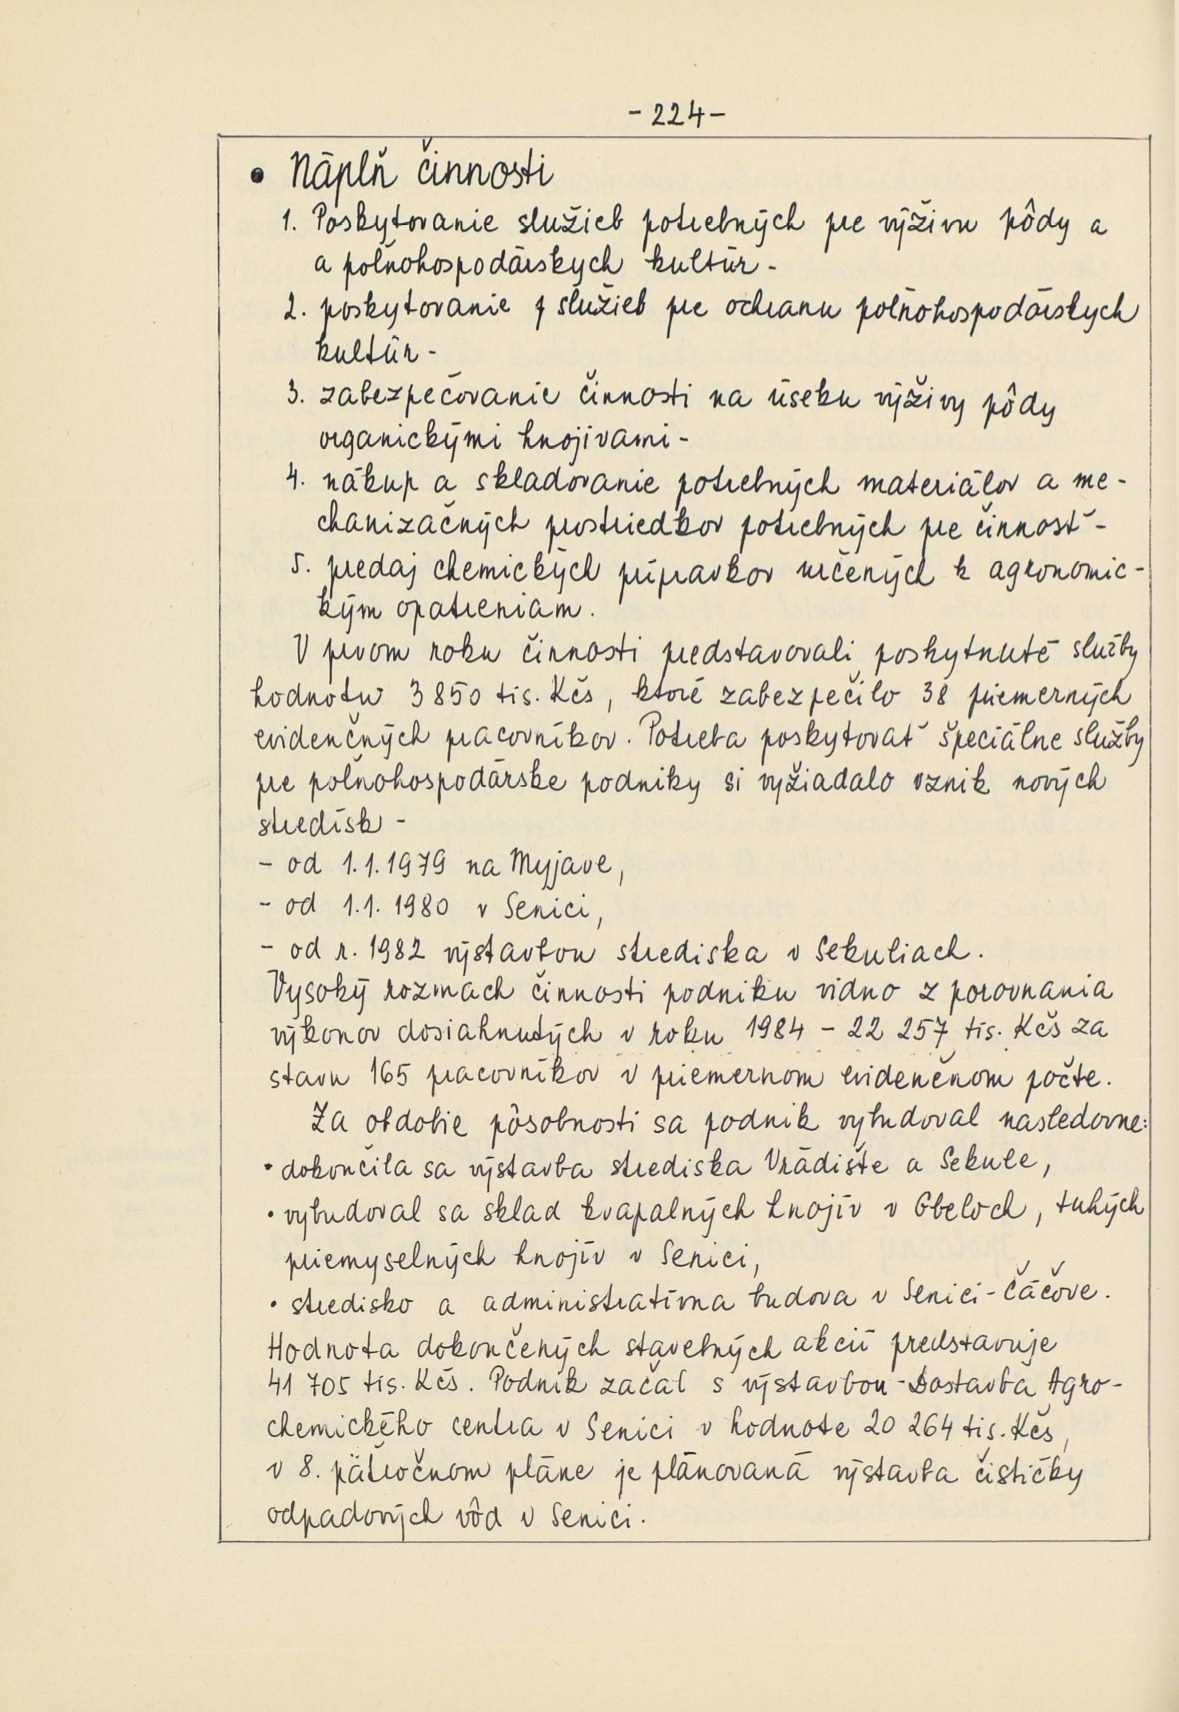 -224-
• Náplň činnosti
1. Poskytovanie služieb potrebných pre výživu pôdy a
a poľnohospodárskych kultúr -
2. poskytovanie služieb pre ochranu poľnohospodárskych
kultúr -
3. zabezpečovanie činnosti na úseku výživy pôdy
organickými hnojivami -
4. nákup a skladovanie potrebných materiálov a me-
chanizačných prostriedkov potrebných pre činnosť -
5. predaj chemických prípravkov určených k agronomic-
kým opatreniam.
V prvom roku činnosti predstavovali poskytnuté služby
hodnotu 3 850 tis. Kčs, ktoré zabezpečilo 38 priemerných
evidenčných pracovníkov. Potreba poskytovať špeciálne služby
pre poľnohospodárske podniky si vyžiadalo vznik nových
stredísk -
- od 1.1.1979 na Myjave,
- od 1.1. 1980 v Senici,
- od r. 1982 výstavbou strediska v Sekuliach.
Vysoký rozmach činnosti podniku vidno z porovnania
výkonov dosiahnutých v roku 1984 - 22 257 tis. Kčs za
stavu 165 pracovníkov v priemernom evidenčnom počte.
Za obdobie pôsobnosti sa podnik vybudoval nasledovne:
• dokončila sa výstavba strediska Vrádište a Sekule,
• vybudoval sa sklad kvapalných hnojív v Gbeloch, tuhých
priemyselných hnojív v Senici,
• stredisko a administratívna budova v Senici - Čáčove.
Hodnota dokončených stavebných akcií predstavuje
41 705 tis. Kčs. Podnik začal s výstavbou - Dostavba Agro-
chemického centra v Senici v hodnote 20 264 tis. Kčs,
v 8. päťročnom pláne je plánovaná výstavba čističky
odpadových vôd v Senici.